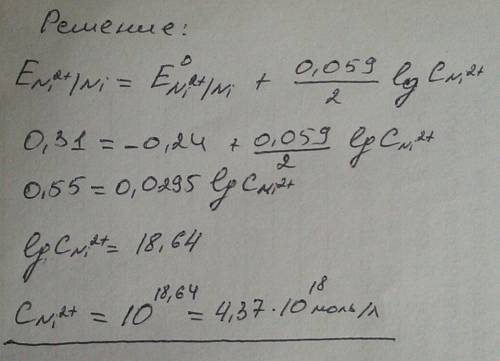 Решение:
E Ni²⁺/Ni = E⁰ Ni²⁺/Ni + 0,059/2 lg C Ni²⁺
0,31 = -0,24 + 0,059/2 lg C Ni²⁺
0,55 = 0,0295 lg C Ni²⁺
lg C Ni²⁺ = 18,64
C Ni²⁺ = 10^18,64 = 4,37 · 10^18 моль/л